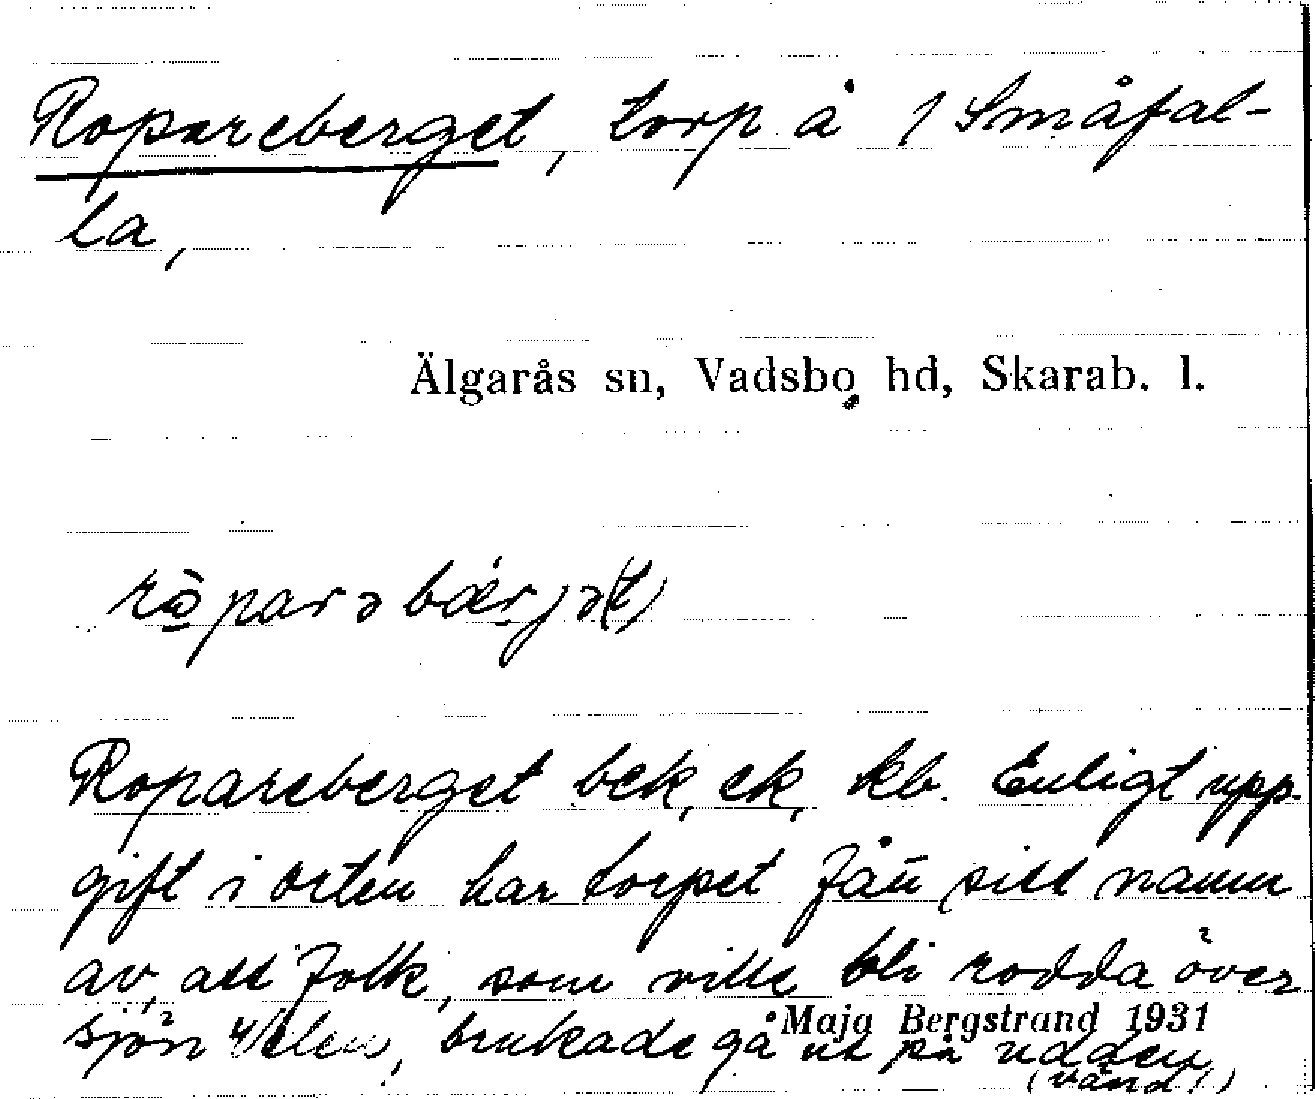 Ropareberget, torp å 1 Småfal-
la,
Älgarås sn, Vadsbo hd, Skarab. l.
rò̱parəbǽrjə(t)
Ropareberget bek, ek, kb. Enligt upp-
gift i orten har torpet fått sitt namn
av, att folk, som ville bli rodda över
sjön Velen, brukade gå ut på udden
Maja Bergstrand 1931
(vänd!)